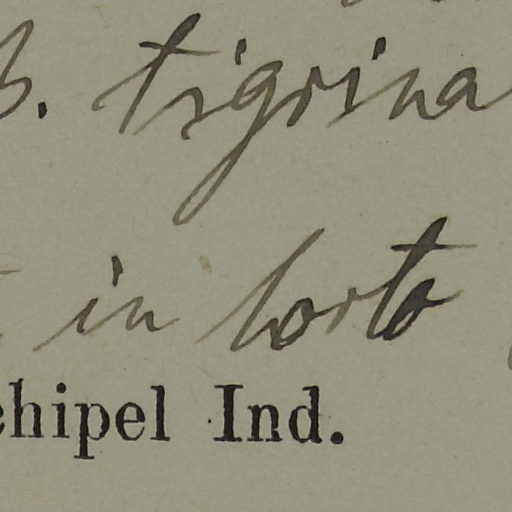 B. tigrina
in horto
chipel Ind.